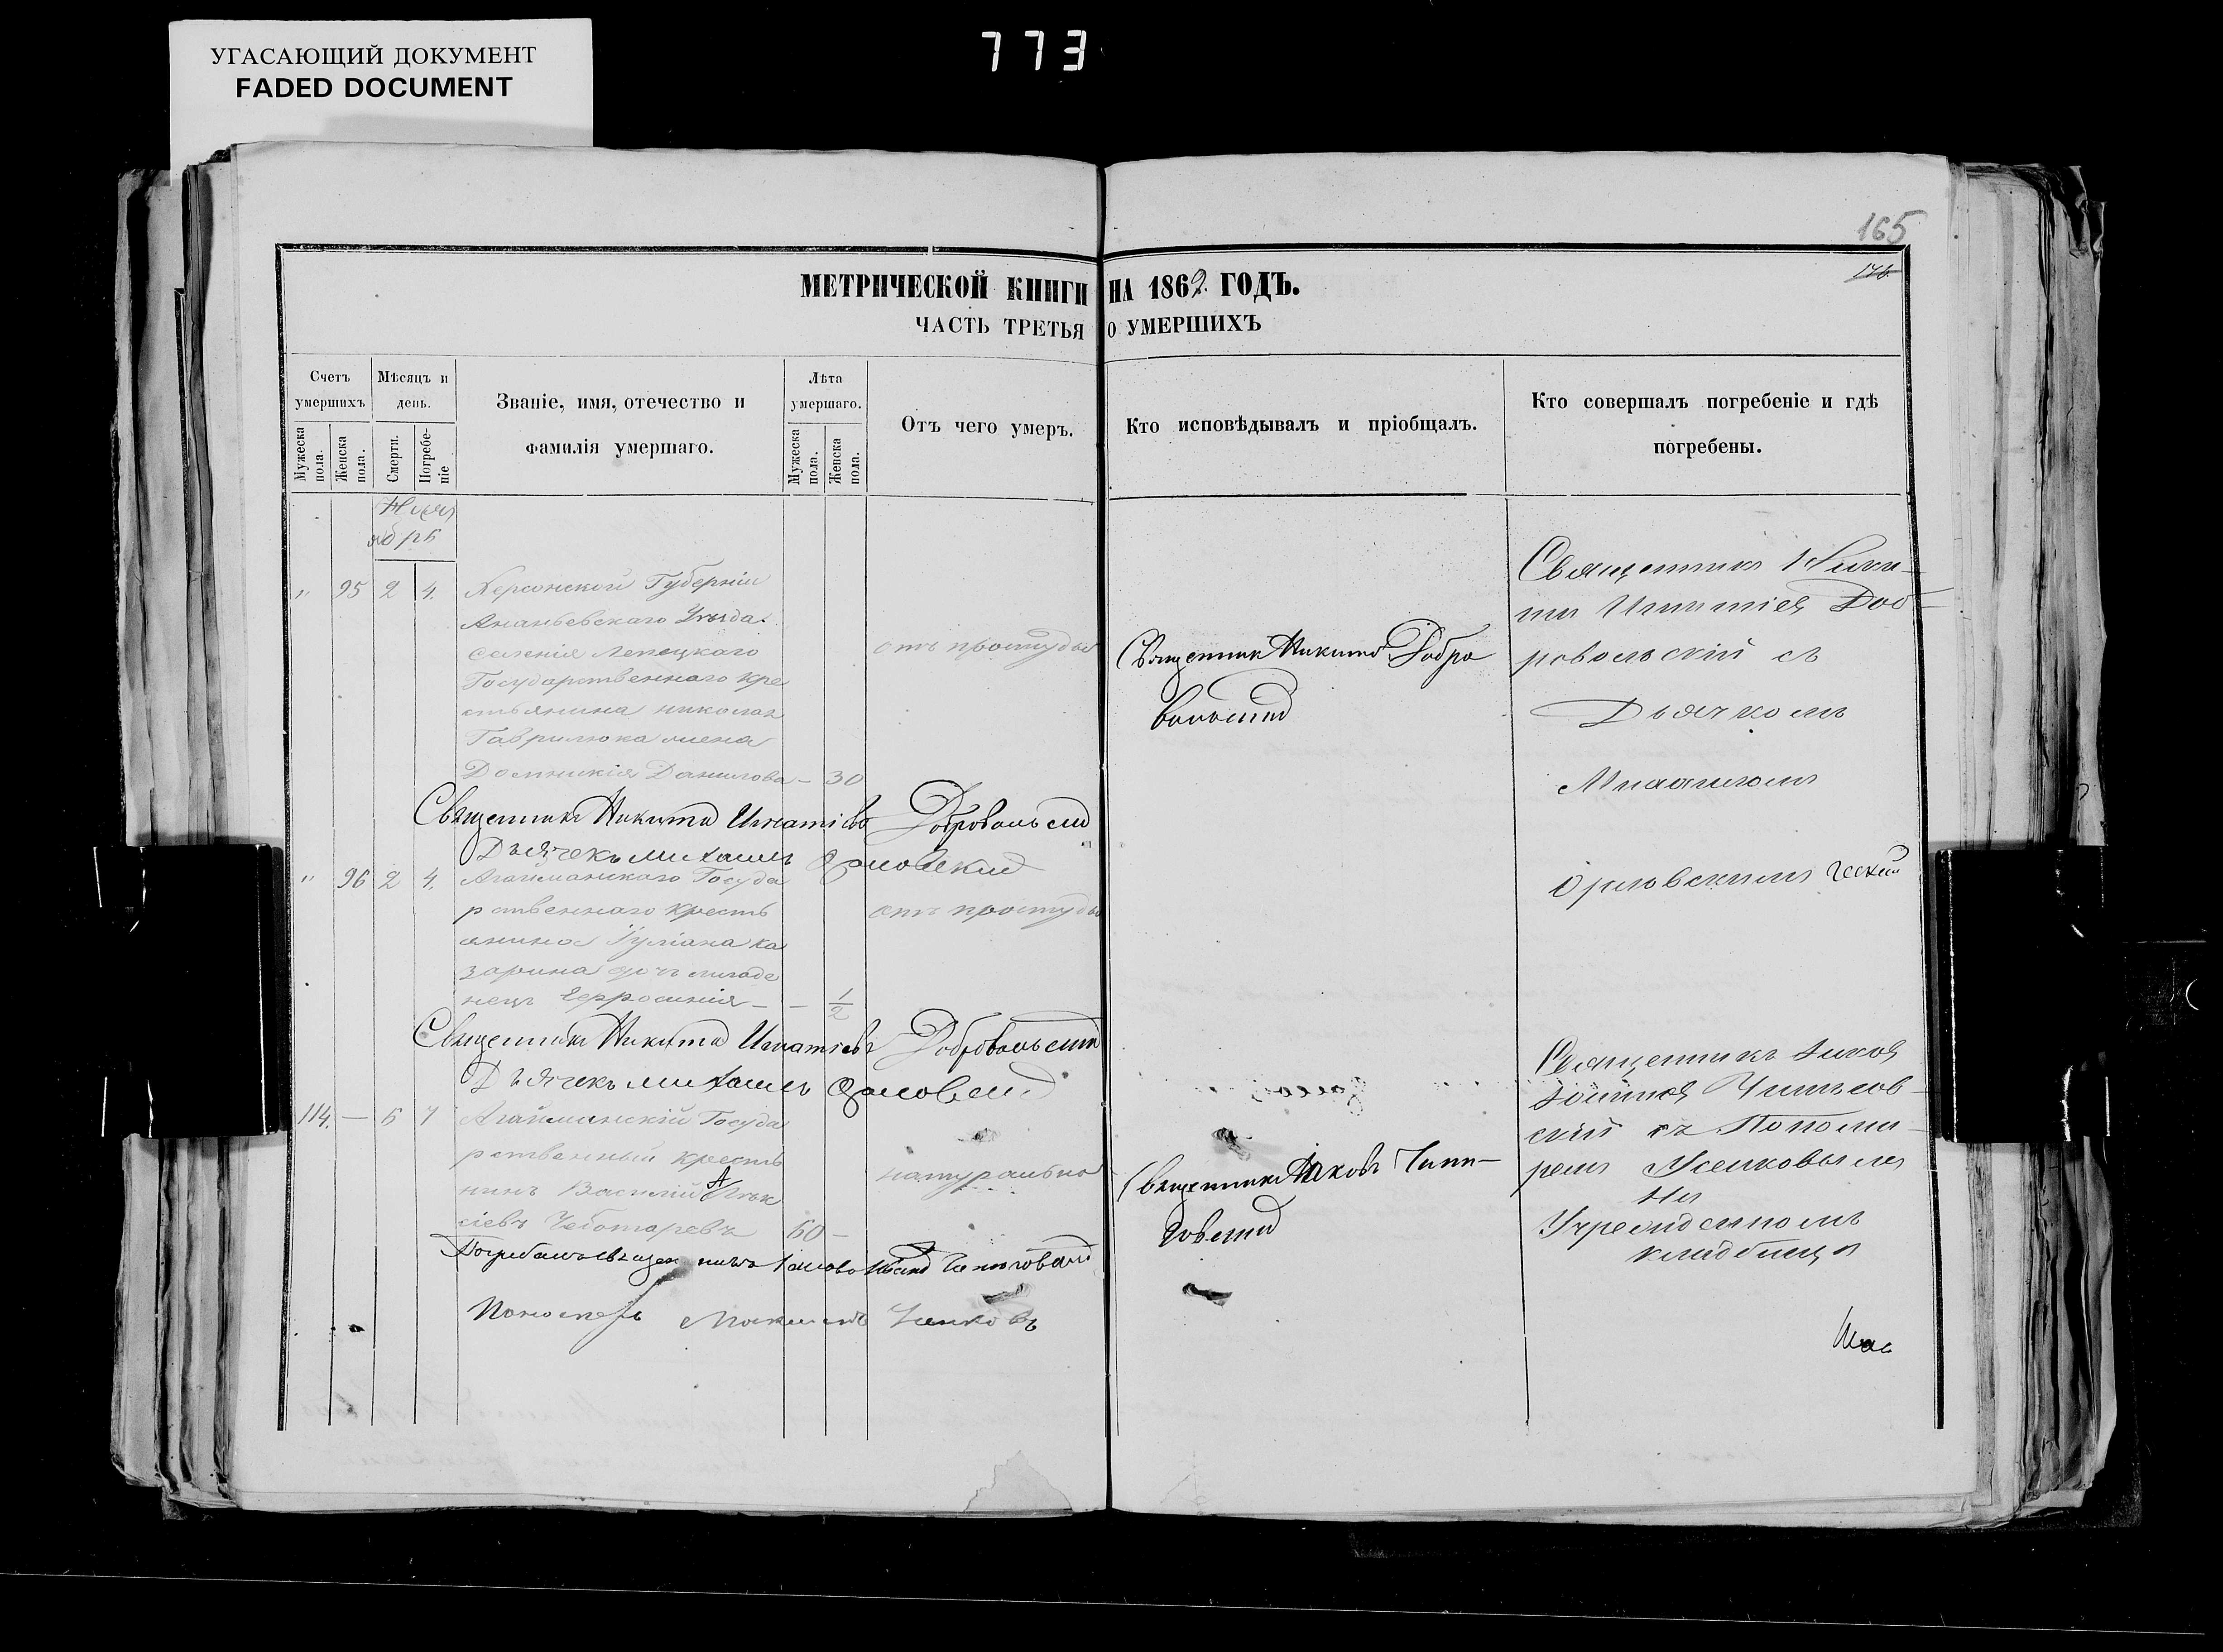 УГАСАЮЩИЙ ДОКУМЕНТ
FADED DOCUMENT
773
165
МЕТРИЧЕСКОЙ КНИГИ НА 1862 ГОДЪ.
ЧАСТЬ ТРЕТЬЯ О УМЕРШИХЪ
Счетъ умершихъ
Мужеска пола.
Женска пола.
Мѣсяцъ и день.
Смерти.
Погребеніе
Званіе, имя, отечество и
фамилія умершаго.
Лѣта умершаго.
Мужеска пола.
Женска пола.
Отъ чего умеръ.
Кто исповѣдывалъ и пріобщалъ.
Кто совершалъ погребеніе и гдѣ
погребены.
" 95 2 4. Херсонской Губерніи
Ананьевскаго Уѣзда
селенія
Государственнаго кре
стьянина николая
Гаврилюка жена
Домникія Данилова - 30
отъ простуды
Священник Никита Добро
вольскій
Священникъ Никита Игнатіевъ Добровольскій
Дьячекъ михаилъ Орловскій
Священникъ Ники
та Игнатіев Доб
ровольскій съ
Дьячкомъ
Михаиломъ
Орловскимъ
" 96 2 4. Агайманскаго Госуда
рственнаго кресть
янина Іуліана ка
зарина дочь младе
нецъ Евфросинія - - 1/2
отъ простуды
Священникъ Никита Игнатіевъ Добровольскій
Дьячекъ михаилъ Орловскій
114. — 6 7 Агайманскій Госуда
рственный кресть
нинъ Василій Алек
сіевъ Чеботаревъ 60 -
натурально
Священникъ Іаковъ
Священникъ Іаков
скій съ Понома
ремъ
На
кладбищѣ
Пономарь Усиковъ